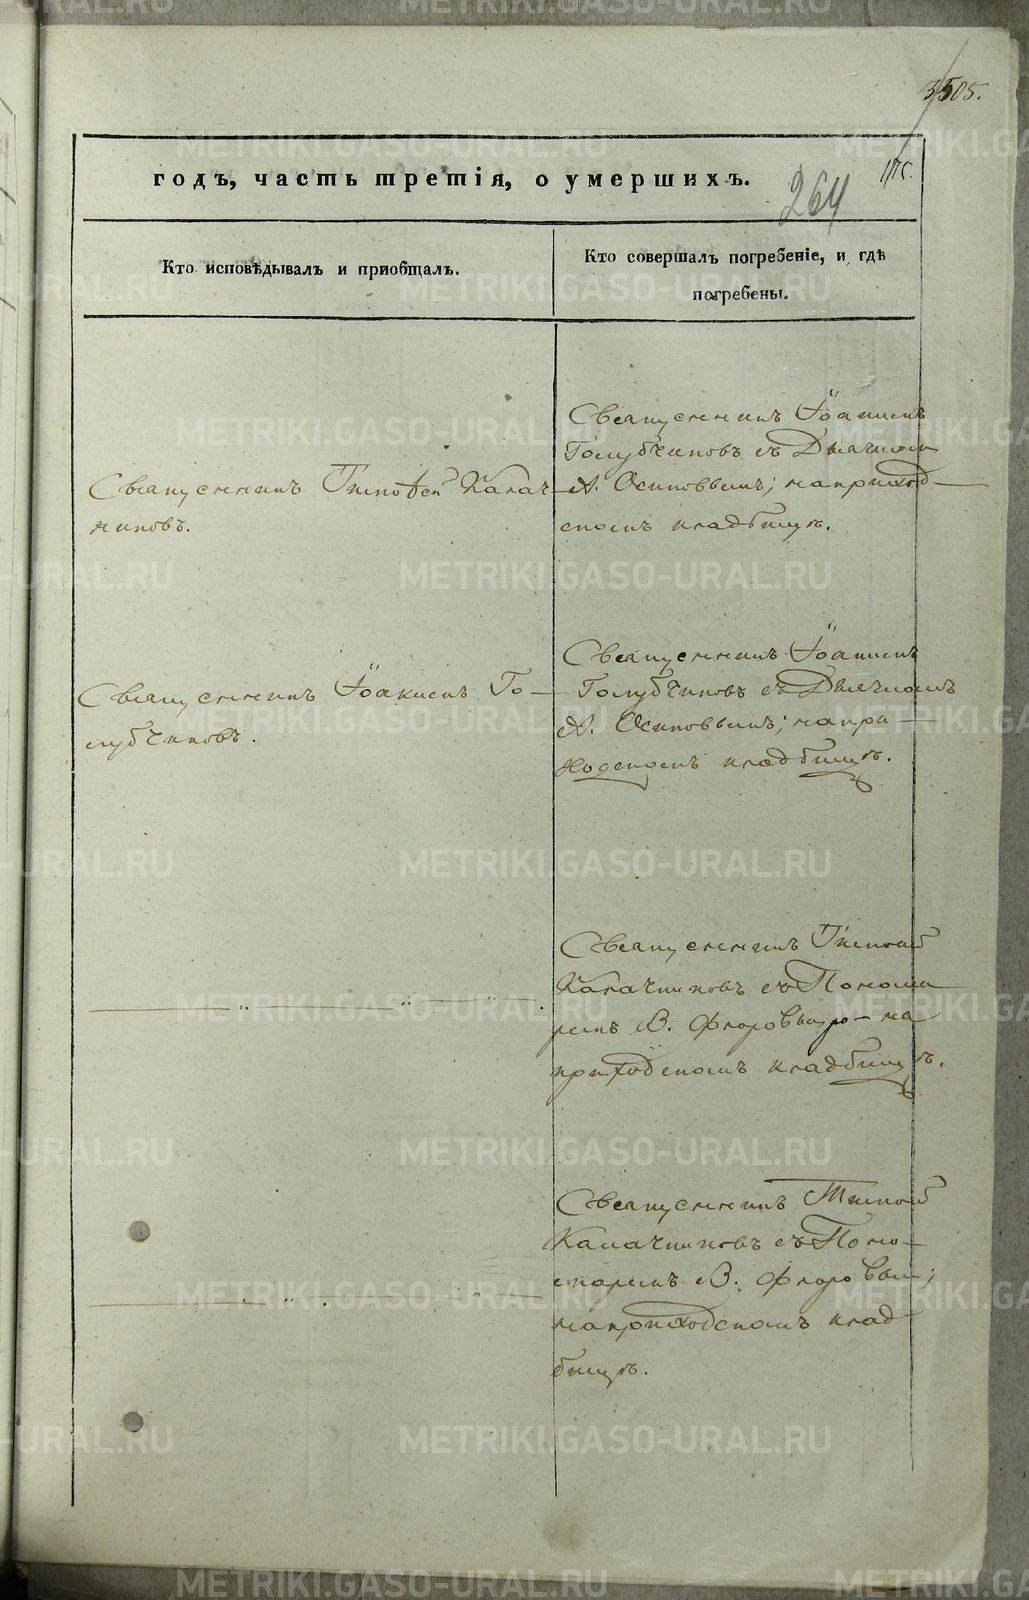 3505.
годъ, часть третія, о умершихъ.
264
Кто исповѣдывалъ и приобщалъ.
Кто совершалъ погребеніе, и гдѣ
погребены.
Священникъ Іоакимъ
Голубчиковъ съ Дьячкомъ
А. Осиповымъ; на приход-
скомъ кладбищѣ.
Священникъ Тимоѳей Калач-
никовъ.
Священникъ Іоакимъ
Голубчиковъ съ Дьячкомъ
А. Осиповымъ; на при-
ходскомъ кладбищѣ.
Священникъ Іоакимъ Го-
лубчиковъ.
Священникъ Тимоѳей
Калачниковъ съ Понома
ремъ В. Флоровымъ на
приходскомъ кладбищѣ.
Священникъ Тимоѳей
Калачниковъ съ Поно-
маремъ В. Флоровым;
на приходскомъ клад
бищѣ.
METRIKI.GASO-URAL.RU